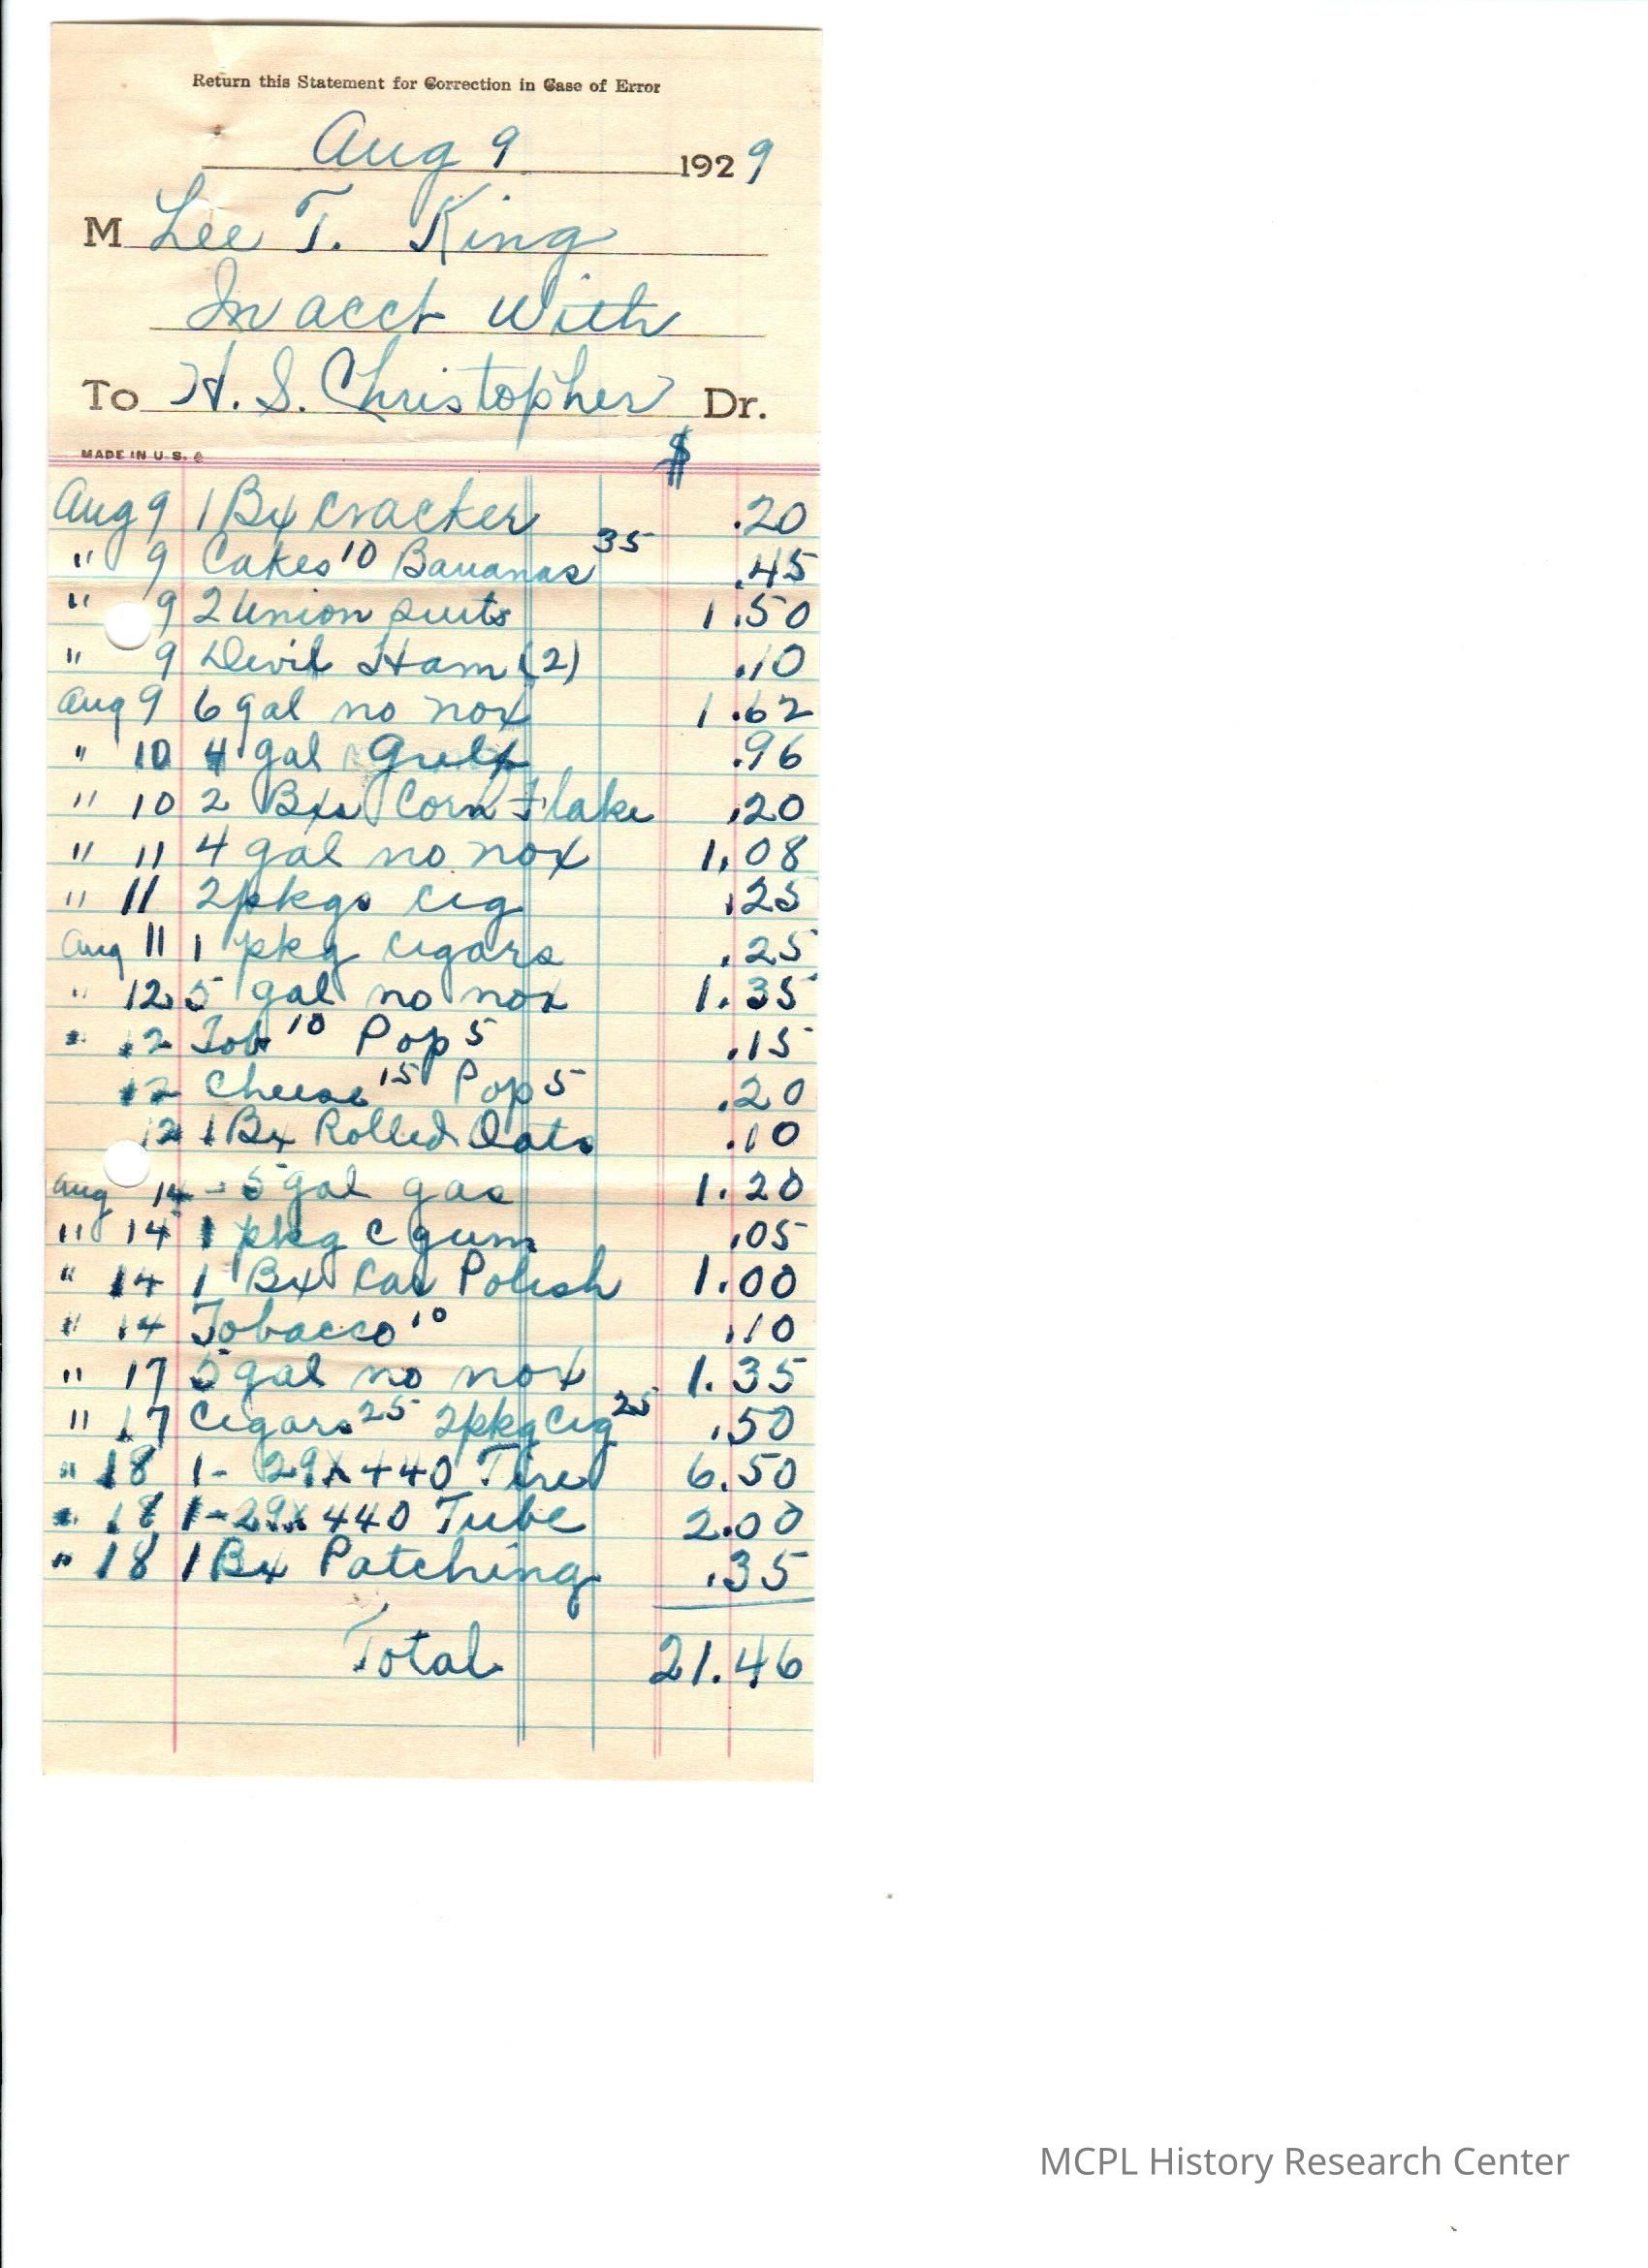 Return this Statement for Correction in Case of Error
Aug 9 1929
M Lee T. King
In acct with
To H. S. Christopher Dr.
MADE IN U.S.A.
$
Aug 9 1 Bx cracker .20
" 9 Cakes 10 Bananas 35 .45
" 9 2 Union suits 1.50
" 9 Devil Ham (2) .10
Aug 9 6 gal no nox 1.62
" 10 4 gal Gulf .96
" 10 2 Bxs Corn Flake .20
" 11 4 gal no nox 1.08
" 11 2 pkgs cig .25
Aug 11 1 pkg cigars .25
" 12 5 gal no nox 1.35
" 12 Tob 10 Pop 5 .15
12 Cheese 15 Pop 5 .20
12 1 Bx Rolled Oats .10
Aug 14 - 5 gal gas 1.20
" 14 1 pkg C gum .05
" 14 1 Bx Car Polish 1.00
" 14 Tobacco 10 .10
" 17 5 gal no nox 1.35
" 17 Cigars 25 2 pkg Cig 25 .50
" 18 1- 29x440 Tire 6.50
" 18 1-29x440 Tube 2.00
" 18 1 Bx Patching .35
Total 21.46
MCPL History Research Center